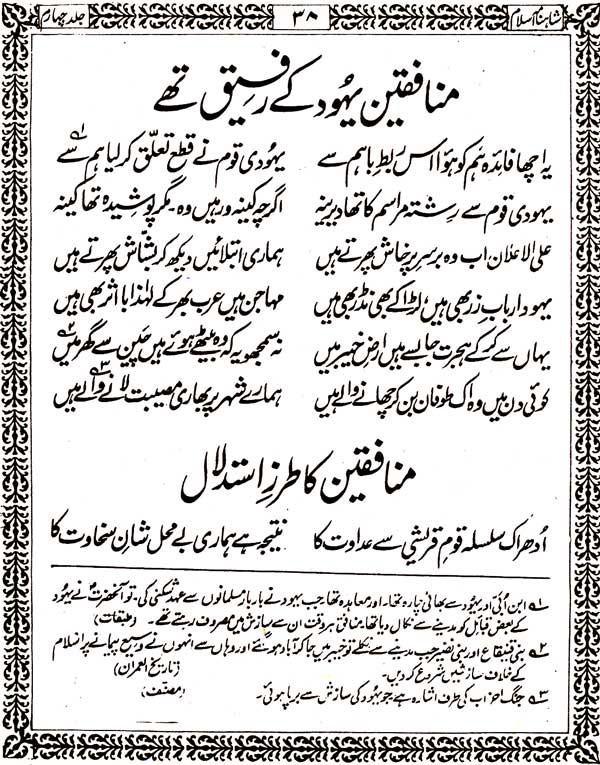 شاہنامۂ اسلام ۳۸ جلد چہارم
منافقین یہود کے رفیق تھے
یہ اچھا فائدہ ہم کو ہوا اس ربطِ باہم سے یہودی قوم نے قطع تعلّق کر لیا ہم سے ؎۱
یہودی قوم سے رشتہ مراسم کا تھا دیرینہ اگرچہ کینہ ور ہیں وہ۔ مگر پوشیدہ تھا کینہ
علی الاعلان اب وہ برسرِ پرخاش پھرتے ہیں ہماری ابتلائیں دیکھ کر بشّاش پھرتے ہیں
یہود اربابِ زر بھی ہیں، لڑاکے بھی نڈر بھی ہیں مہاجن ہیں عرب بھر کے لہٰذا با اثر بھی ہیں
یہاں سے کر کے ہجرت جا بسے ہیں ارضِ خیبر میں نہ سمجھو یہ کہ وہ بیٹھے ہوئے ہیں چین سے گھر میں ؎۲
کوئی دن میں وہ اک طوفان بن کر چھانے والے ہیں ہمارے شہر پر بھاری مصیبت لانے والے ہیں ؎۳
منافقین کا طرزِ استدلال
اُدھر اک سلسلہ قومِ قریشی سے عداوت کا نتیجہ ہے ہماری بے محل شانِ سخاوت کا
؎۱ ابن اُبی اور یہود سے بھائی چارہ تھا۔ اور معاہدہ تھا، جب یہود نے بار بار مسلمانوں سے عہد شکنی کی۔ تو آنحضرتؐ نے یہود
کے بعض قبائل کو مدینے سے نکال دیا تھا، منافق ہر وقت ان سے سازش میں مصروف رہتے تھے۔ (طبقات)
؎۲ بنی قینقاع اور بنی نضیر جب مدینے سے نکلے تو خیبر میں جا کر آباد ہو گئے اور وہاں سے انہوں نے وسیع پیمانے پر اسلام
کے خلاف سازشیں شروع کر دیں۔ (تاریخ العمران)
؎۳ جنگ احزاب کی طرف اشارہ ہے جو یہود کی سازش سے برپا ہوئی۔ (مصنف)